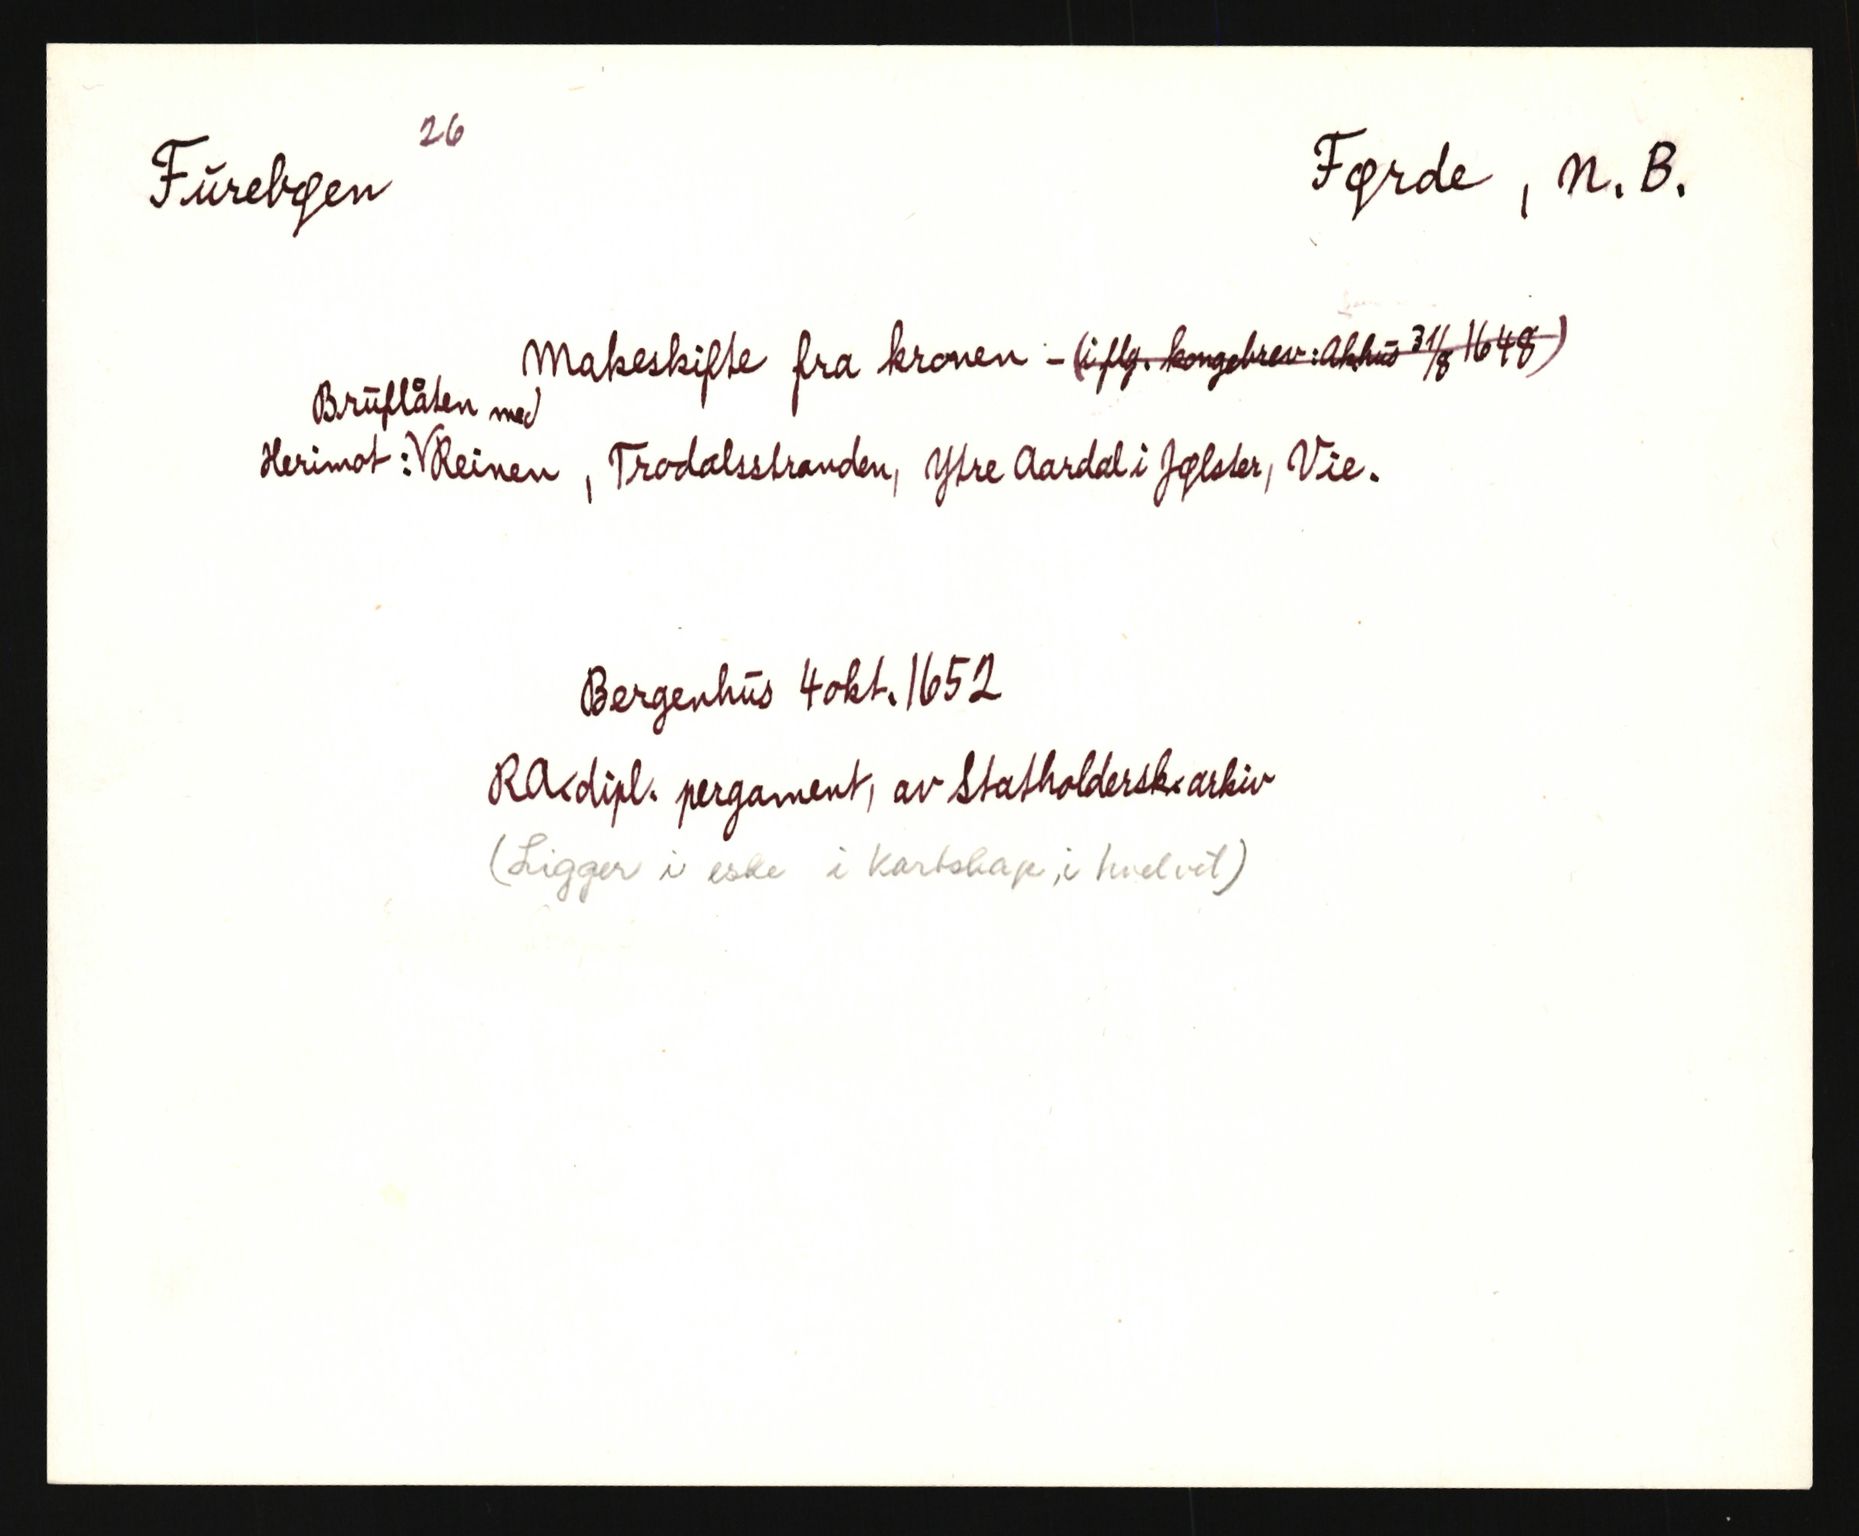 Furebøen 26 Førde, N. B.
Makeskifte fra kronen - (iflg. kongebrev: Akhus 31/8 1648)
Bruflåten med
Herimot: Reinen, Trodalsstranden, Ytre Aardal i Jølster, Vie.
Bergenhus 4 okt. 1652
RA. dipl. pergament, av Statholdersk. arkiv
(Ligger i eske i Kartskap, i hvelvet)